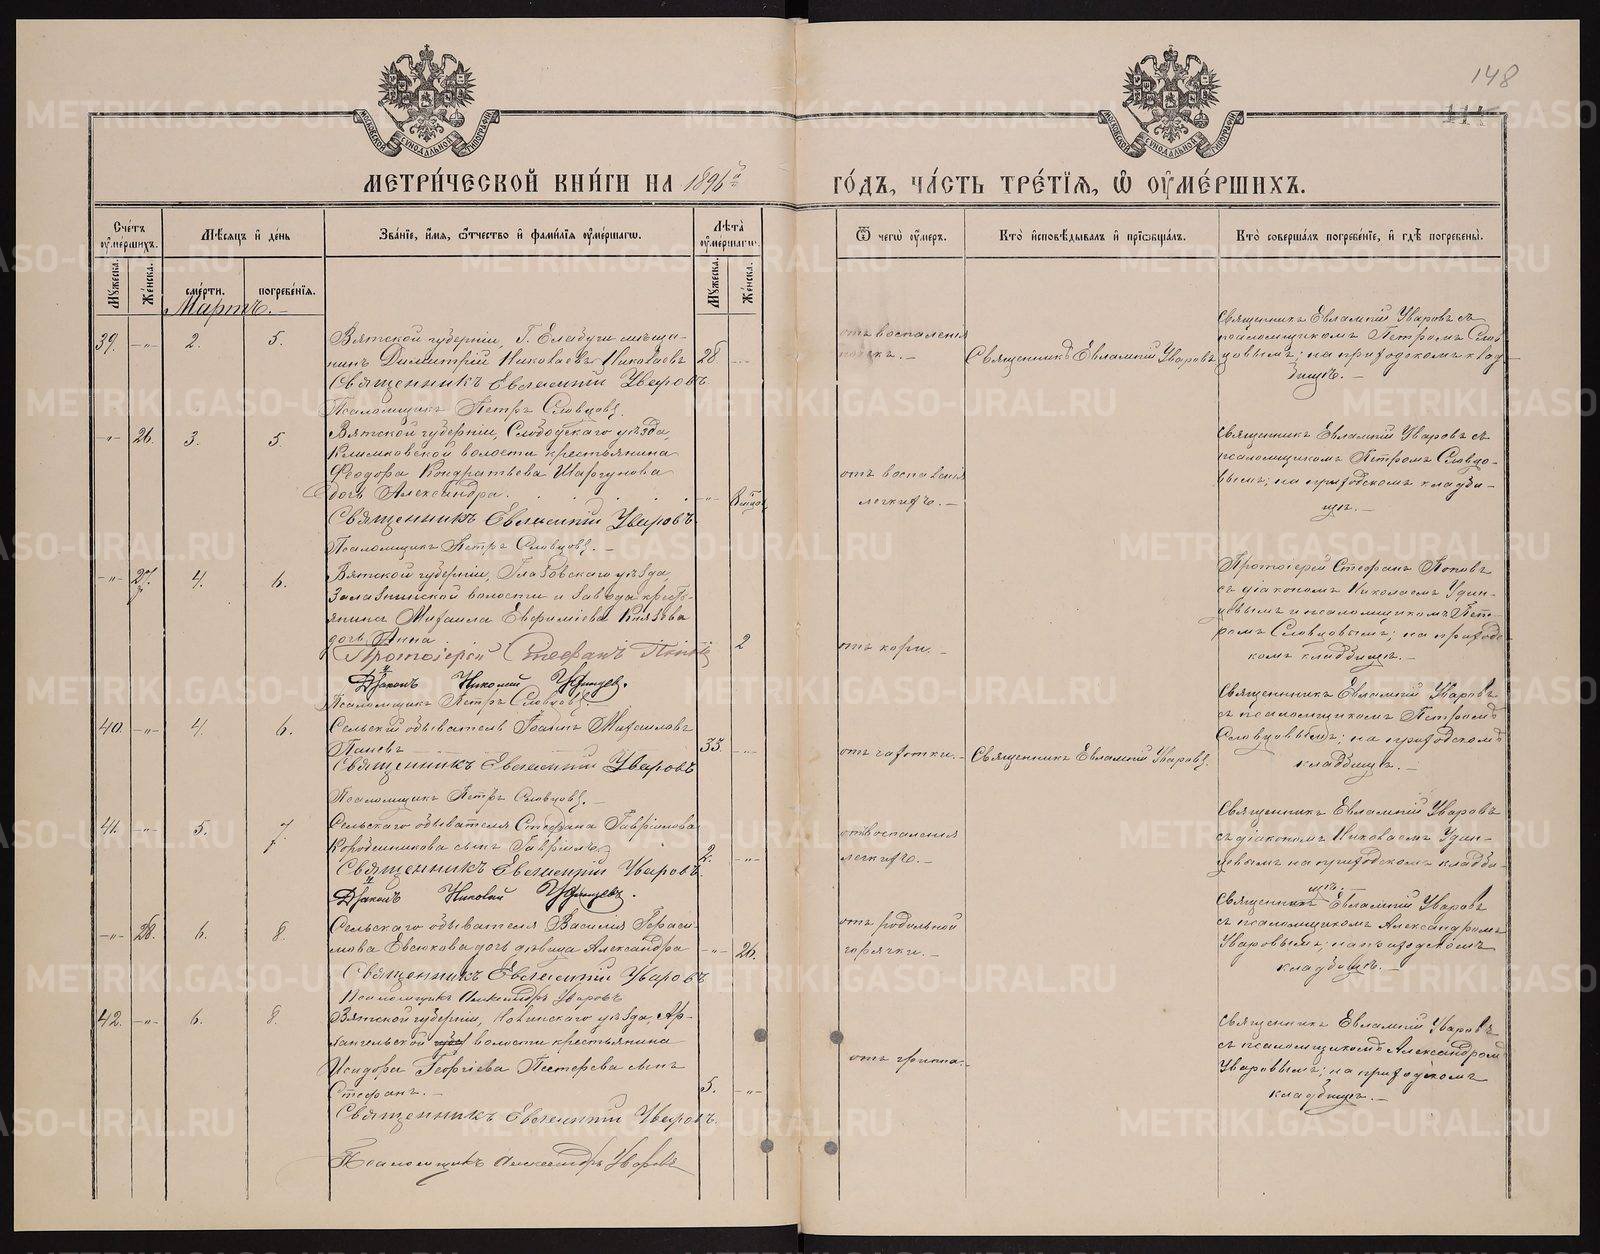 148
МОСКОВСКОЙ СУНОДАЛЬНОЙ ТИПОГРАФІИ
МОСКОВСКОЙ СУНОДАЛЬНОЙ ТИПОГРАФІИ
МЕТРИ́ЧЕСКОЙ КНИ́ГИ НА 1896й ГО́ДЪ, ЧА́СТЬ ТРЕ́ТІѦ, Ѡ ОУМЕ́РШИХЪ.
Сче́тъ оуме́ршихъ.
Мѣ́сяцъ и де́нь
Зва́ніе, и́мя, ѻ́тчество и фами́лія оуме́ршагѡ.
Лѣ́та оуме́ршагѡ.
Ѿ чегѡ̀ оу́меръ.
Кто̀ исповѣ́дывалъ и пріѡбща́лъ.
Кто̀ соверша́лъ погребе́ніе, и гдѣ̀ погребены̀.
Му́жеска.
Же́нска.
сме́рти.
погребе́нія.
Му́жеска.
Же́нска.
Мартъ.
39. -„- 2. 5.
Вятской губерніи, Г. Елабуги мѣща-
нинъ Димитрій Николаевъ Николаевъ 28.
Священникъ Евлампій Уваровъ
Псаломщикъ Петръ Словцовъ.
отъ воспаленія
Священникъ Евлампій Уваровъ
Священникъ Евлампій Уваровъ съ
псаломщикомъ Петромъ Слов-
цовымъ; на приходскомъ клад-
бищѣ.
-„- 26. 3. 5.
Вятской губерніи, Слободскаго уѣзда,
Климковской волости крестьянина
Феодора Кондратьева Шаргунова
дочь Александра. -„-
Священникъ Евлампій Уваровъ
Псаломщикъ Петръ Словцовъ.
отъ воспаленія
легкихъ.
Священникъ Евлампій Уваровъ съ
псаломщикомъ Петромъ Словцо-
вымъ; на приходскомъ кладби-
щѣ.
-„- 27. 4. 6.
Вятской губерніи, Глазовскаго уѣзда,
Залазнинской волости и завода кресть-
янина Михаила Евфиміева Князева
дочь Анна 2
Протоіерей Стефанъ Поповъ
Діаконъ Николай Удинцев.
Псаломщикъ Петръ Словцовъ
отъ кори.
Протоіерей Стефанъ Поповъ
съ діакономъ Николаемъ Удин-
цевымъ и псаломщикомъ Пет-
ромъ Словцовымъ; на приходс-
комъ кладбищѣ.
40. -„- 4. 6.
Сельскій обыватель Іоаннъ Михаиловъ
Паневъ 33. -„-
Священникъ Евлампій Уваровъ
Псаломщикъ Петръ Словцовъ.
отъ чахотки.
Священникъ Евлампій Уваровъ.
Священникъ Евлампій Уваровъ
съ псаломщикомъ Петромъ
Словцовымъ; на приходскомъ
кладбищѣ.
41. -„- 5. 7.
Сельскаго обывателя Стефана Гавріилова
Коробейникова сынъ Гавріилъ 2. -„-
Священникъ Евлампій Уваровъ.
Діаконъ Николай Удинцевъ.
отъ воспаленія
легкихъ.
Священникъ Евлампій Уваровъ
съ діакономъ Николаемъ Удин-
цевымъ на приходскомъ кладби-
щѣ.
-„- 28. 6. 8.
Сельскаго обывателя Василія Гераси-
мова Евсюкова дочь дѣвица Александра -„- 26.
Священникъ Евлампій Уваровъ
Псаломщикъ Александръ Уваровъ
отъ родильной
горячки.
Священникъ Евлампій Уваровъ
съ псаломщикомъ Александромъ
Уваровымъ; на приходскомъ
кладбищѣ.
42. -„- 6. 8.
Вятской губерніи, Нолинскаго уѣзда, Ар-
хангельской волости крестьянина
Исидора Георгіева Пестерева сынъ
Стефанъ. 5. -„-
Священникъ Евлампій Уваровъ.
Псаломщикъ Александръ Уваровъ
отъ гриппа.
Священникъ Евлампій Уваровъ
съ псаломщикомъ Александромъ
Уваровымъ; на приходскомъ
кладбищѣ.
METRIKI.GASO-URAL.RU